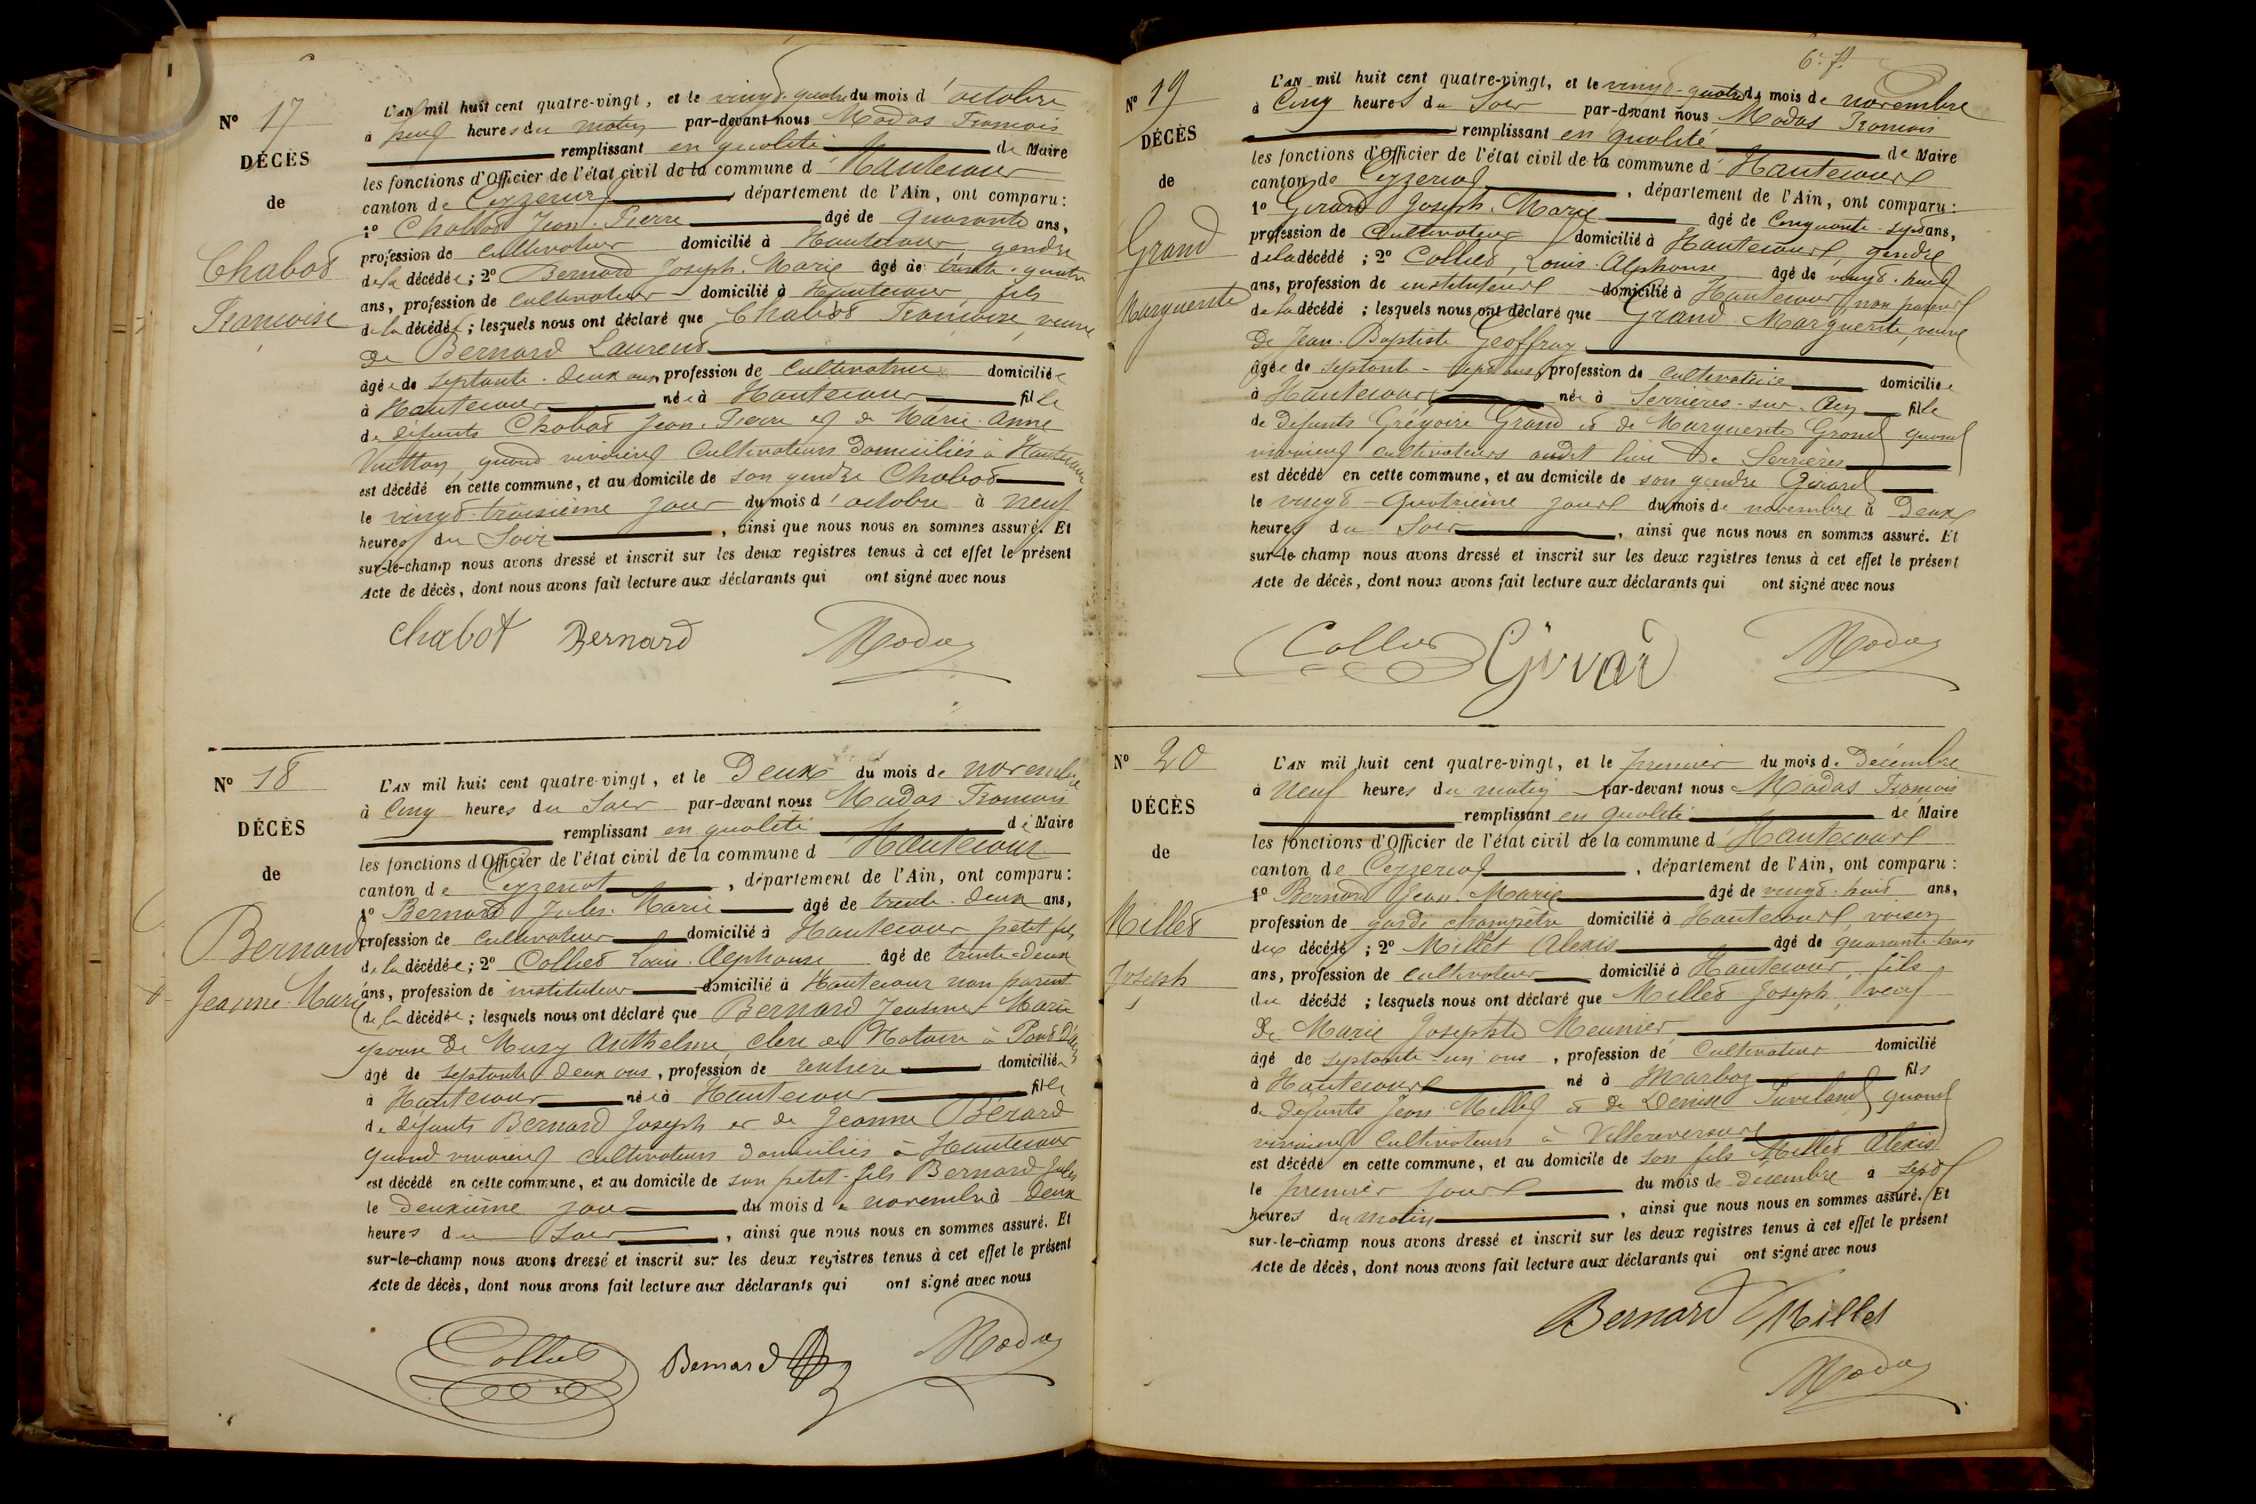 N° 17
DÉCÈS
de
Chabot
Francoise
L'AN mil huit cent quatre-vingt, et le vingt-quatre du mois d'octobre
à neuf heures du matin par-devant nous Modas Francois
remplissant en qualité de Maire
les fonctions d'Officier de l'état civil de la commune d'Hautecour
canton de Ceyzeriat, département de l'Ain, ont comparu:
1° Chabot Jean-Pierre âgé de quarante ans,
profession de cultivateur domicilié à Hautecour, gendre
de la décédée; 2° Bernard Joseph-Marie âgé de trente-quatre
ans, profession de cultivateur domicilié à Hautecour, fils
de la décédée; lesquels nous ont déclaré que Chabot Francoise, veuve
de Bernard Laurent
âgée de septante-deux ans, profession de cultivatrice domiciliée
à Hautecour née à Hautecour fille
de défunts Chabot Jean-Pierre et de Marie-Anne
quand vivaient cultivateurs domiciliés à Hautecour
est décédé en cette commune, et au domicile de son gendre Chabot
le vingt-troisième jour du mois d'octobre à neuf
heures du Soir, ainsi que nous nous en sommes assuré. Et
sur-le-champ nous avons dressé et inscrit sur les deux registres tenus à cet effet le présent
Acte de décès, dont nous avons fait lecture aux déclarants qui ont signé avec nous
Chabot Bernard Modas
N° 18
DÉCÈS
de
Bernard
Jeanne-Marie
L'AN mil huit cent quatre-vingt, et le Deux du mois de novembre
à Cinq heures du Soir par-devant nous Modas Francois
remplissant en qualité de Maire
les fonctions d'Officier de l'état civil de la commune d Hautecour
canton de Ceyzeriat, département de l'Ain, ont comparu:
1° Bernard Jules-Marie âgé de trente-deux ans,
profession de cultivateur domicilié à Hautecour petit fils
de la décédée; 2° Collet Louis-Alphonse âgé de trente-deux
ans, profession de instituteur domicilié à Hautecour non parent
de la décédée; lesquels nous ont déclaré que Bernard Jeanne-Marie
épouse de Anthelme, clerc de Notaire à Pont d'Ain
âgé de septante deux ans, profession de rentière domiciliée
à Hautecour née à Hautecour fille
de défunts Bernard Joseph et de Jeanne Bérard
quand vivaient cultivateurs domiciliés à Hautecour
est décédé en cette commune, et au domicile de son petit-fils Bernard Jules
le deuxième jour du mois de novembre à Deux
heures du Soir, ainsi que nous nous en sommes assuré. Et
sur-le-champ nous avons dressé et inscrit sur les deux registres tenus à cet effet le présent
Acte de décès, dont nous avons fait lecture aux déclarants qui ont signé avec nous
Collet Bernard Modas
6e f.
N° 19
DÉCÈS
de
Grand
Marguerite
L'AN mil huit cent quatre-vingt, et le vingt-quatre du mois de novembre
à Cinq heures du Soir par-devant nous Modas Francois
remplissant en qualité de Maire
les fonctions d'Officier de l'état civil de la commune d'Hautecourt
canton de Ceyzeriat, département de l'Ain, ont comparu:
1° Girard Joseph-Marie âgé de Cinquante-sept ans,
profession de Cultivateur domicilié à Hautecourt gendre
de la décédé; 2° Collet, Louis-Alphonse âgé de vingt-neuf
ans, profession de instituteur domicilié à Hautecour, non parent
de la décédé; lesquels nous ont déclaré que Grand Marguerite, veuve
de Jean-Baptiste Geoffray
âgée de septante-sept ans, profession de cultivatrice domiciliée
à Hautecour née à Serrières-sur-Ain fille
de défunts Grégoire Grand et de Marguerite Grand quand
vivaient cultivateurs audit lieu de Serrières
est décédé en cette commune, et au domicile de son gendre Girard
le vingt-quatrième jour du mois de novembre à Deux
heures du Soir, ainsi que nous nous en sommes assuré. Et
sur-le-champ nous avons dressé et inscrit sur les deux registres tenus à cet effet le présent
Acte de décès, dont nous avons fait lecture aux déclarants qui ont signé avec nous
Collet Girard Modas
N° 20
DÉCÈS
de
Millet
Joseph
L'AN mil huit cent quatre-vingt, et le premier du mois de Décembre
à Neuf heures du matin par-devant nous Modas Francois
remplissant en qualité de Maire
les fonctions d'Officier de l'état civil de la commune d'Hautecourt
canton de Ceyzeriat, département de l'Ain, ont comparu:
1° Bernard Jean-Marie âgé de vingt-huit ans,
profession de garde champêtre domicilié à Hautecourt, voisin
du décédé; 2° Millet Alexis âgé de quarante-trois
ans, profession de cultivateur domicilié à Hautecour, fils
du décédé; lesquels nous ont déclaré que Millet Joseph, veuf
de Marie Josephte Meunier
âgé de septante-un ans, profession de Cultivateur domicilié
à Hautecourt né à Marboz fils
de défunts Jean Millet et de Denise quand
vivaient cultivateurs à Villereversure
est décédé en cette commune, et au domicile de son fils Millet Alexis
le premier jour du mois de décembre à sept
heures du matin, ainsi que nous nous en sommes assuré. Et
sur-le-champ nous avons dressé et inscrit sur les deux registres tenus à cet effet le présent
Acte de décès, dont nous avons fait lecture aux déclarants qui ont signé avec nous
Bernard Millet
Modas